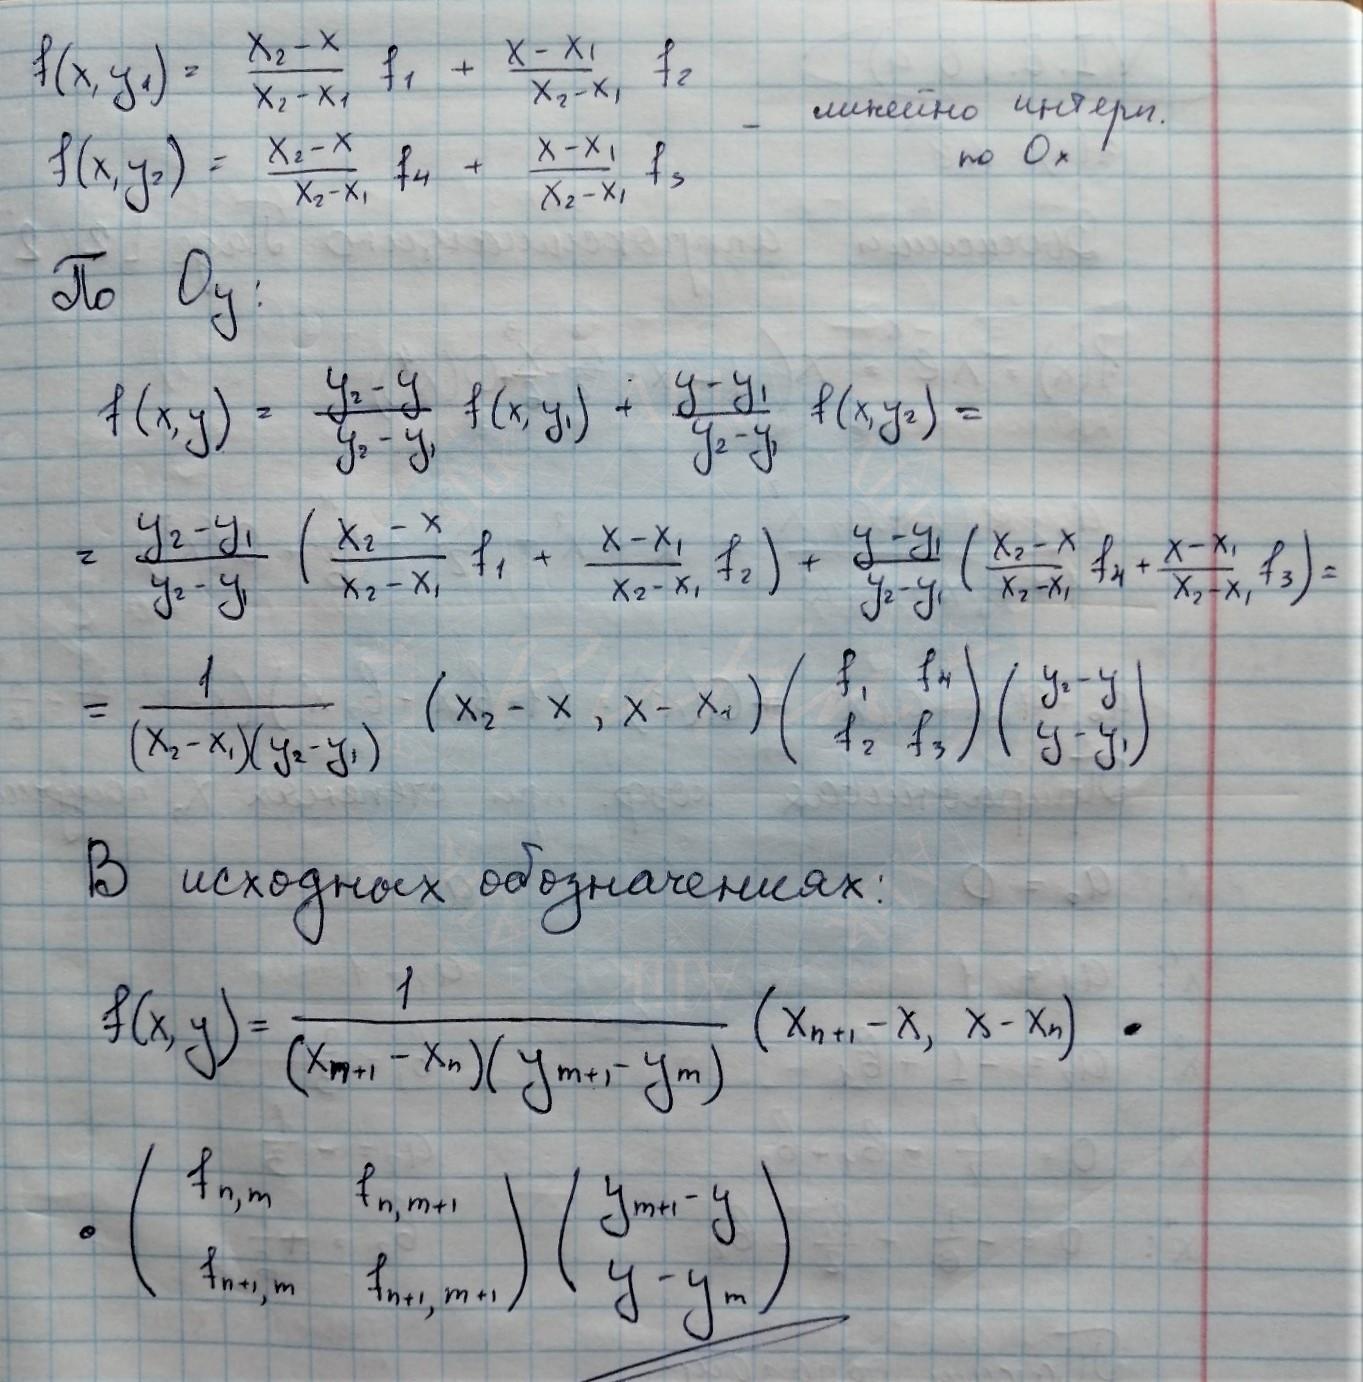 f(x, y₁) = (x₂ − x)/(x₂ − x₁) f₁ + (x − x₁)/(x₂ − x₁) f₂
– линейно интерп.
f(x, y₂) = (x₂ − x)/(x₂ − x₁) f₄ + (x − x₁)/(x₂ − x₁) f₃
по Ox
По Oy:
f(x, y) = (y₂ − y)/(y₂ − y₁) f(x, y₁) + (y − y₁)/(y₂ − y₁) f(x, y₂) =
= (y₂ − y₁)/(y₂ − y₁) ( (x₂ − x)/(x₂ − x₁) f₁ + (x − x₁)/(x₂ − x₁) f₂ ) + (y − y₁)/(y₂ − y₁) ( (x₂ − x)/(x₂ − x₁) f₄ + (x − x₁)/(x₂ − x₁) f₃ ) =
= 1/((x₂ − x₁)(y₂ − y₁)) (x₂ − x, x − x₁) ( f₁ f₄ ; f₂ f₃ ) ( y₂ − y ; y − y₁ )
В исходных обозначениях:
f(x, y) = 1/((xₘ₊₁ − xₙ)(yₘ₊₁ − yₘ)) (xₙ₊₁ − x, x − xₙ) •
• ( fₙ,ₘ fₙ,ₘ₊₁ ; fₙ₊₁,ₘ fₙ₊₁,ₘ₊₁ ) ( yₘ₊₁ − y ; y − yₘ )